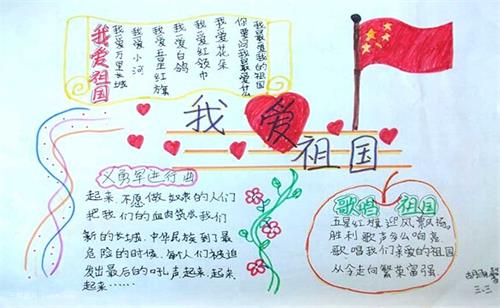 我爱祖国
我爱万里长城
我爱小河
我爱五星红旗
我爱白鸽
我爱红领巾
我爱花朵
你要问我最爱什么
我最爱我的祖国
我爱祖国
义勇军进行曲
起来 不愿做奴隶的人们
把我们的血肉筑成我们
新的长城.中华民族到了最
危险的时候.每个人们被迫
发出最后的吼声起来.起来.
起来......
歌唱 祖国
五星红旗迎风飘扬,
胜利歌声多么响亮
歌唱我们亲爱的祖国
从今走向繁荣富强.
三.三